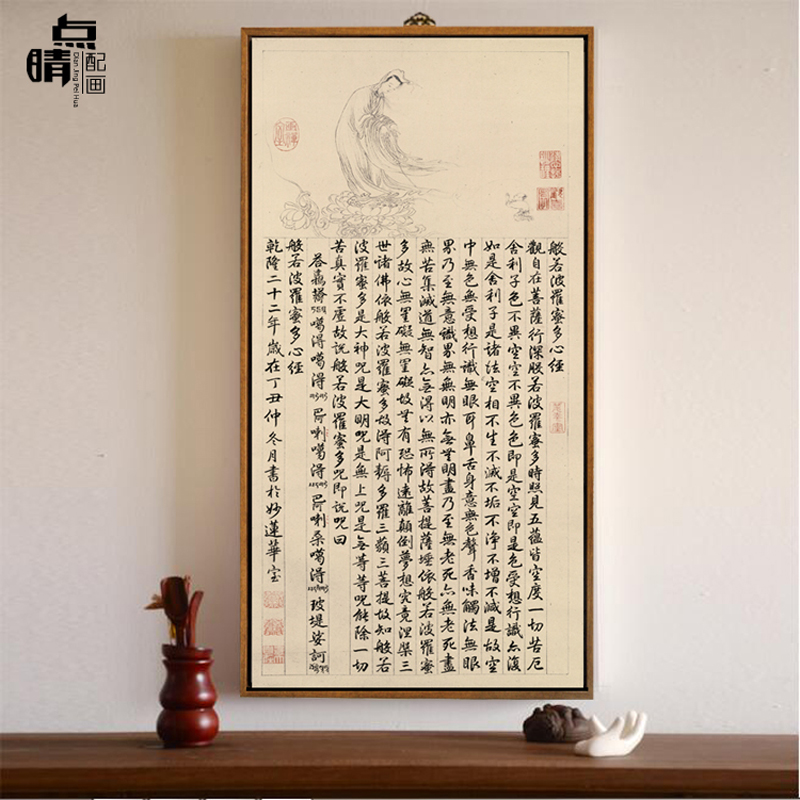 点睛
配画
Dian Jing Pei Hua
般若波羅蜜多心經
觀自在菩薩行深般若波羅蜜多時照見五蘊皆空度一切苦厄
舍利子色不異空空不異色色即是空空即是色受想行識亦復
如是舍利子是諸法空相不生不滅不垢不淨不增不減是故空
中無色無受想行識無眼耳鼻舌身意無色聲香味觸法無眼
界乃至無意識界無無明亦無無明盡乃至無老死亦無老死盡
無苦集滅道無智亦無得以無所得故菩提薩埵依般若波羅蜜
多故心無罣礙無罣礙故無有恐怖遠離顛倒夢想究竟涅槃三
世諸佛依般若波羅蜜多故得阿耨多羅三藐三菩提故知般若
波羅蜜多是大神咒是大明咒是無上咒是無等等咒能除一切
苦真實不虛故說般若波羅蜜多咒即說咒曰
噶得噶得 巴喇噶得 巴喇桑噶得 玻堤娑訶
般若波羅蜜多心經
乾隆二十二年歲在丁丑仲冬月書於妙蓮華室